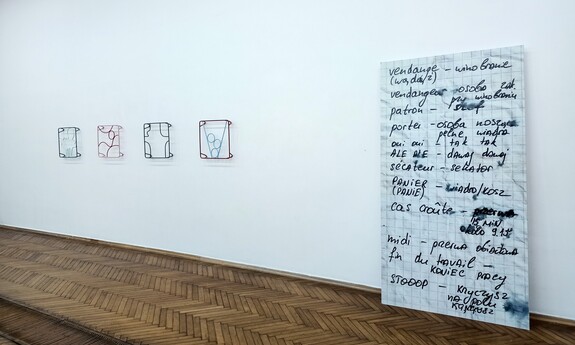 vendange – winobranie
(wądąż)
vendangeur – osoba zbk.
przy winobraniu
patron – szef
porter – osoba nosząca
pełne wiadra
oui oui – tak tak
ALE ALE – dawaj dawaj
sécateur – sekator
PANIER – wiadro/kosz
(PANIE)
cas croûte – przerwa
15 MIN
około 9.15
midi – przerwa obiadowa
fin du travail –
KONIEC PRACY
STOOOP – krzyczysz
na polu